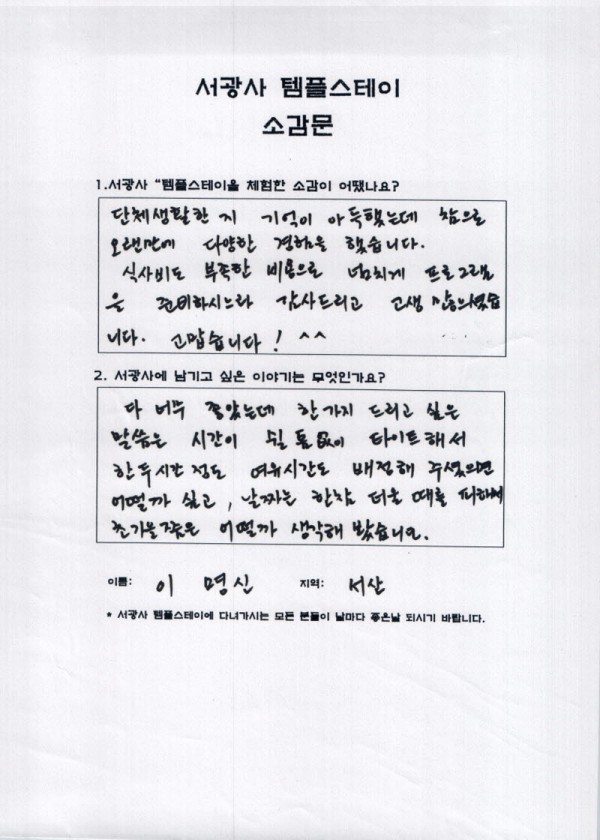 서광사 템플스테이
소감문
1.서광사 "템플스테이을 체험한 소감이 어땠나요?
단체생활한 지 기억이 아득했는데 참으로
오랜만에 다양한 경험을 했습니다.
식사비도 부족한 비용으로 넘치게 프로그램
을 준비하시느라 감사드리고 고생 많으셨습
니다. 고맙습니다! ^^
2. 서광사에 남기고 싶은 이야기는 무엇인가요?
다 너무 좋았는데 한가지 드리고 싶은
말씀은 시간이 쉴 틈 없이 타이트해서
한두시간 정도 여유시간도 배정해 주셨으면
어떨까 싶고, 날짜는 한참 더울 때를 피해서
초가을쯤은 어떨까 생각해 봤습니다.
이름: 이명신 지역: 서산
* 서광사 템플스테이에 다녀가시는 모든 분들이 날마다 좋은날 되시기 바랍니다.